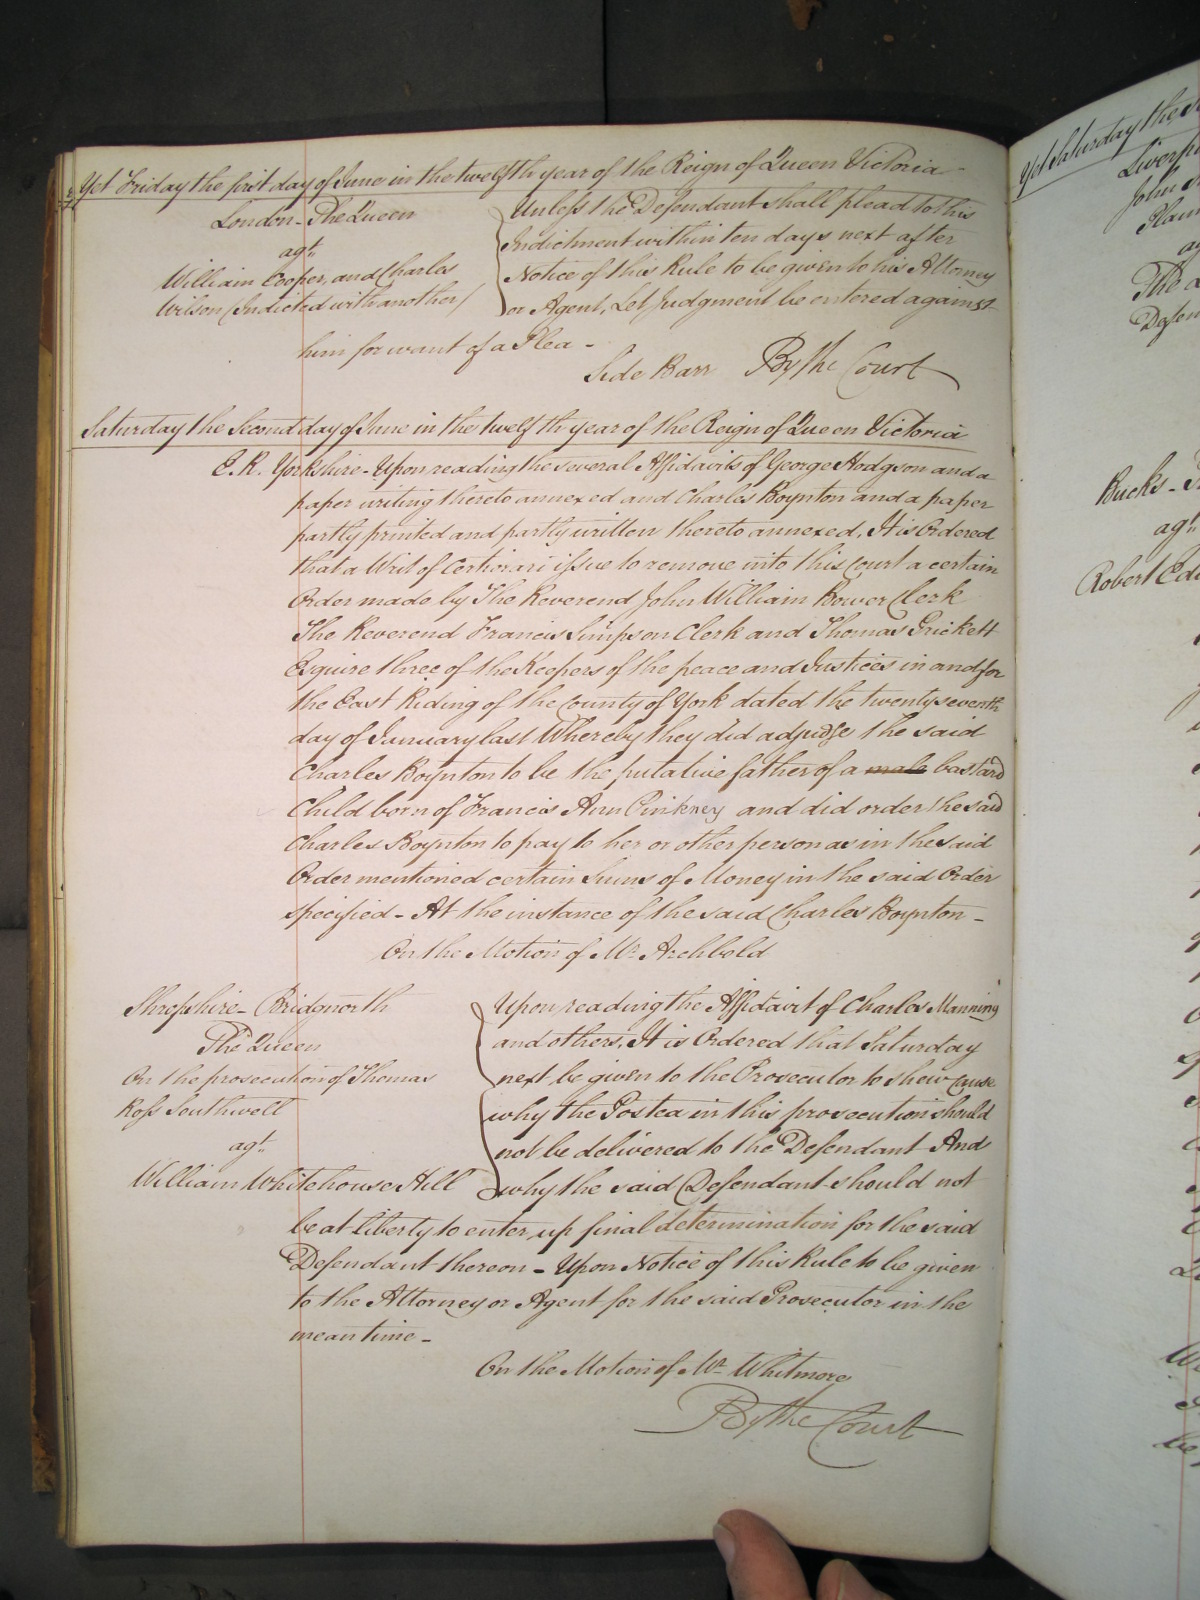 Yet Friday the first day of June in the twelfth year of the Reign of Queen Victoria
London - The Queen
agt.
William Cooper, and Charles
Wilson (Indicted with another)
Unless the Defendant shall plead to this
Indictment within ten days next after
Notice of this Rule to be given to his Attorney
or Agent, Let Judgment be entered against
him for want of a Plea -
Side Barr By the Court
Saturday the Second day of June in the twelfth year of the Reign of Queen Victoria
E. R. Yorkshire - Upon reading the several Affidavits of George Hodgson and a
paper writing thereto annexed and Charles Boynton and a paper
partly printed and partly written thereto annexed, It is Ordered
that a Writ of Certiorari issue to remove into this Court a certain
Order made by The Reverend John William Bower Clerk
The Reverend Francis Simpson Clerk and Thomas Prickett
Esquire three of the Keepers of the peace and Justices in and for
the East Riding of the County of York dated the twenty seventh
day of January last Whereby they did adjudge the said
Charles Boynton to be the putative father of a male bastard
Child born of Francis Ann Pinkney and did order the said
Charles Boynton to pay to her or other person as in the said
Order mentioned certain Sums of Money in the said Order
specified - At the instance of the said Charles Boynton -
On the Motion of Mr. Archbold
Shropshire - Bridgnorth
The Queen
On the prosecution of Thomas
Ross Southwell
agt.
William Whitehouse Hill
Upon reading the Affidavit of Charles Manning
and others, It is Ordered that Saturday
next be given to the Prosecutor to shew cause
why the Postea in this prosecution should
not be delivered to the Defendant And
why the said Defendant should not
be at liberty to enter up final determination for the said
Defendant thereon - Upon Notice of this Rule to be given
to the Attorney or Agent for the said Prosecutor in the
mean time -
On the Motion of Mr. Whitmore
By the Court
Yet Saturday the
John
The
Bucks -
agt.
Robert